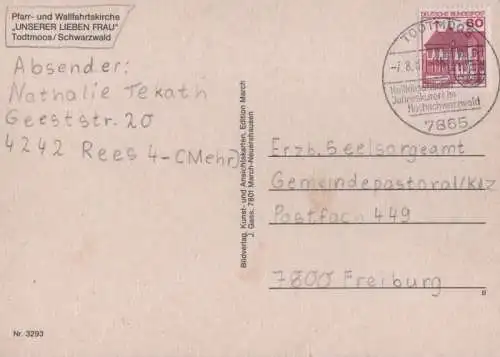 Pfarr- und Wallfahrtskirche
„UNSERER LIEBEN FRAU"
Todtmoos/Schwarzwald
Absender:
Nathalie Tekath
Geeststr. 20
4242 Rees 4-(Mehr)
Bildverlag, Kunst- und Ansichtskarten, Edition March
J. Gass, 7801 March-Neuershausen
DEUTSCHE BUNDESPOST
60
TODTMOOS
-7.8.
Jahreskurort im
Hochschwarzwald
7865
Erzb. Seelsorgeamt
Gemeindepastoral/Kiz
Postfach 449
7800 Freiburg
Nr. 3293